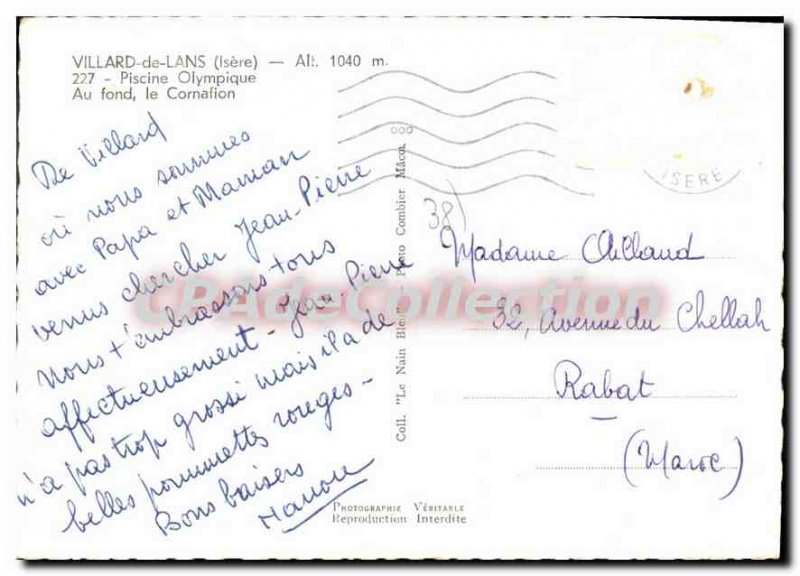 VILLARD-de-LANS (Isère) — Alt. 1040 m.
227 - Piscine Olympique
Au fond, le Cornafion
De Villard
où nous sommes
avec Papa et Maman
venus chercher Jean-Pierre
Nous t'embrassons tous
affectueusement - Jean-Pierre
n'a pas trop grossi mais il a de
belles pommettes rouges -
Bons baisers
Manon
Coll. "Le Nain Bleu" - Photo Combier Mâcon
ISERE
38)
Madame
32, Avenue du Chellah
Rabat
(Maroc)
PHOTOGRAPHIE VÉRITABLE
Reproduction Interdite
CPAdeCollection